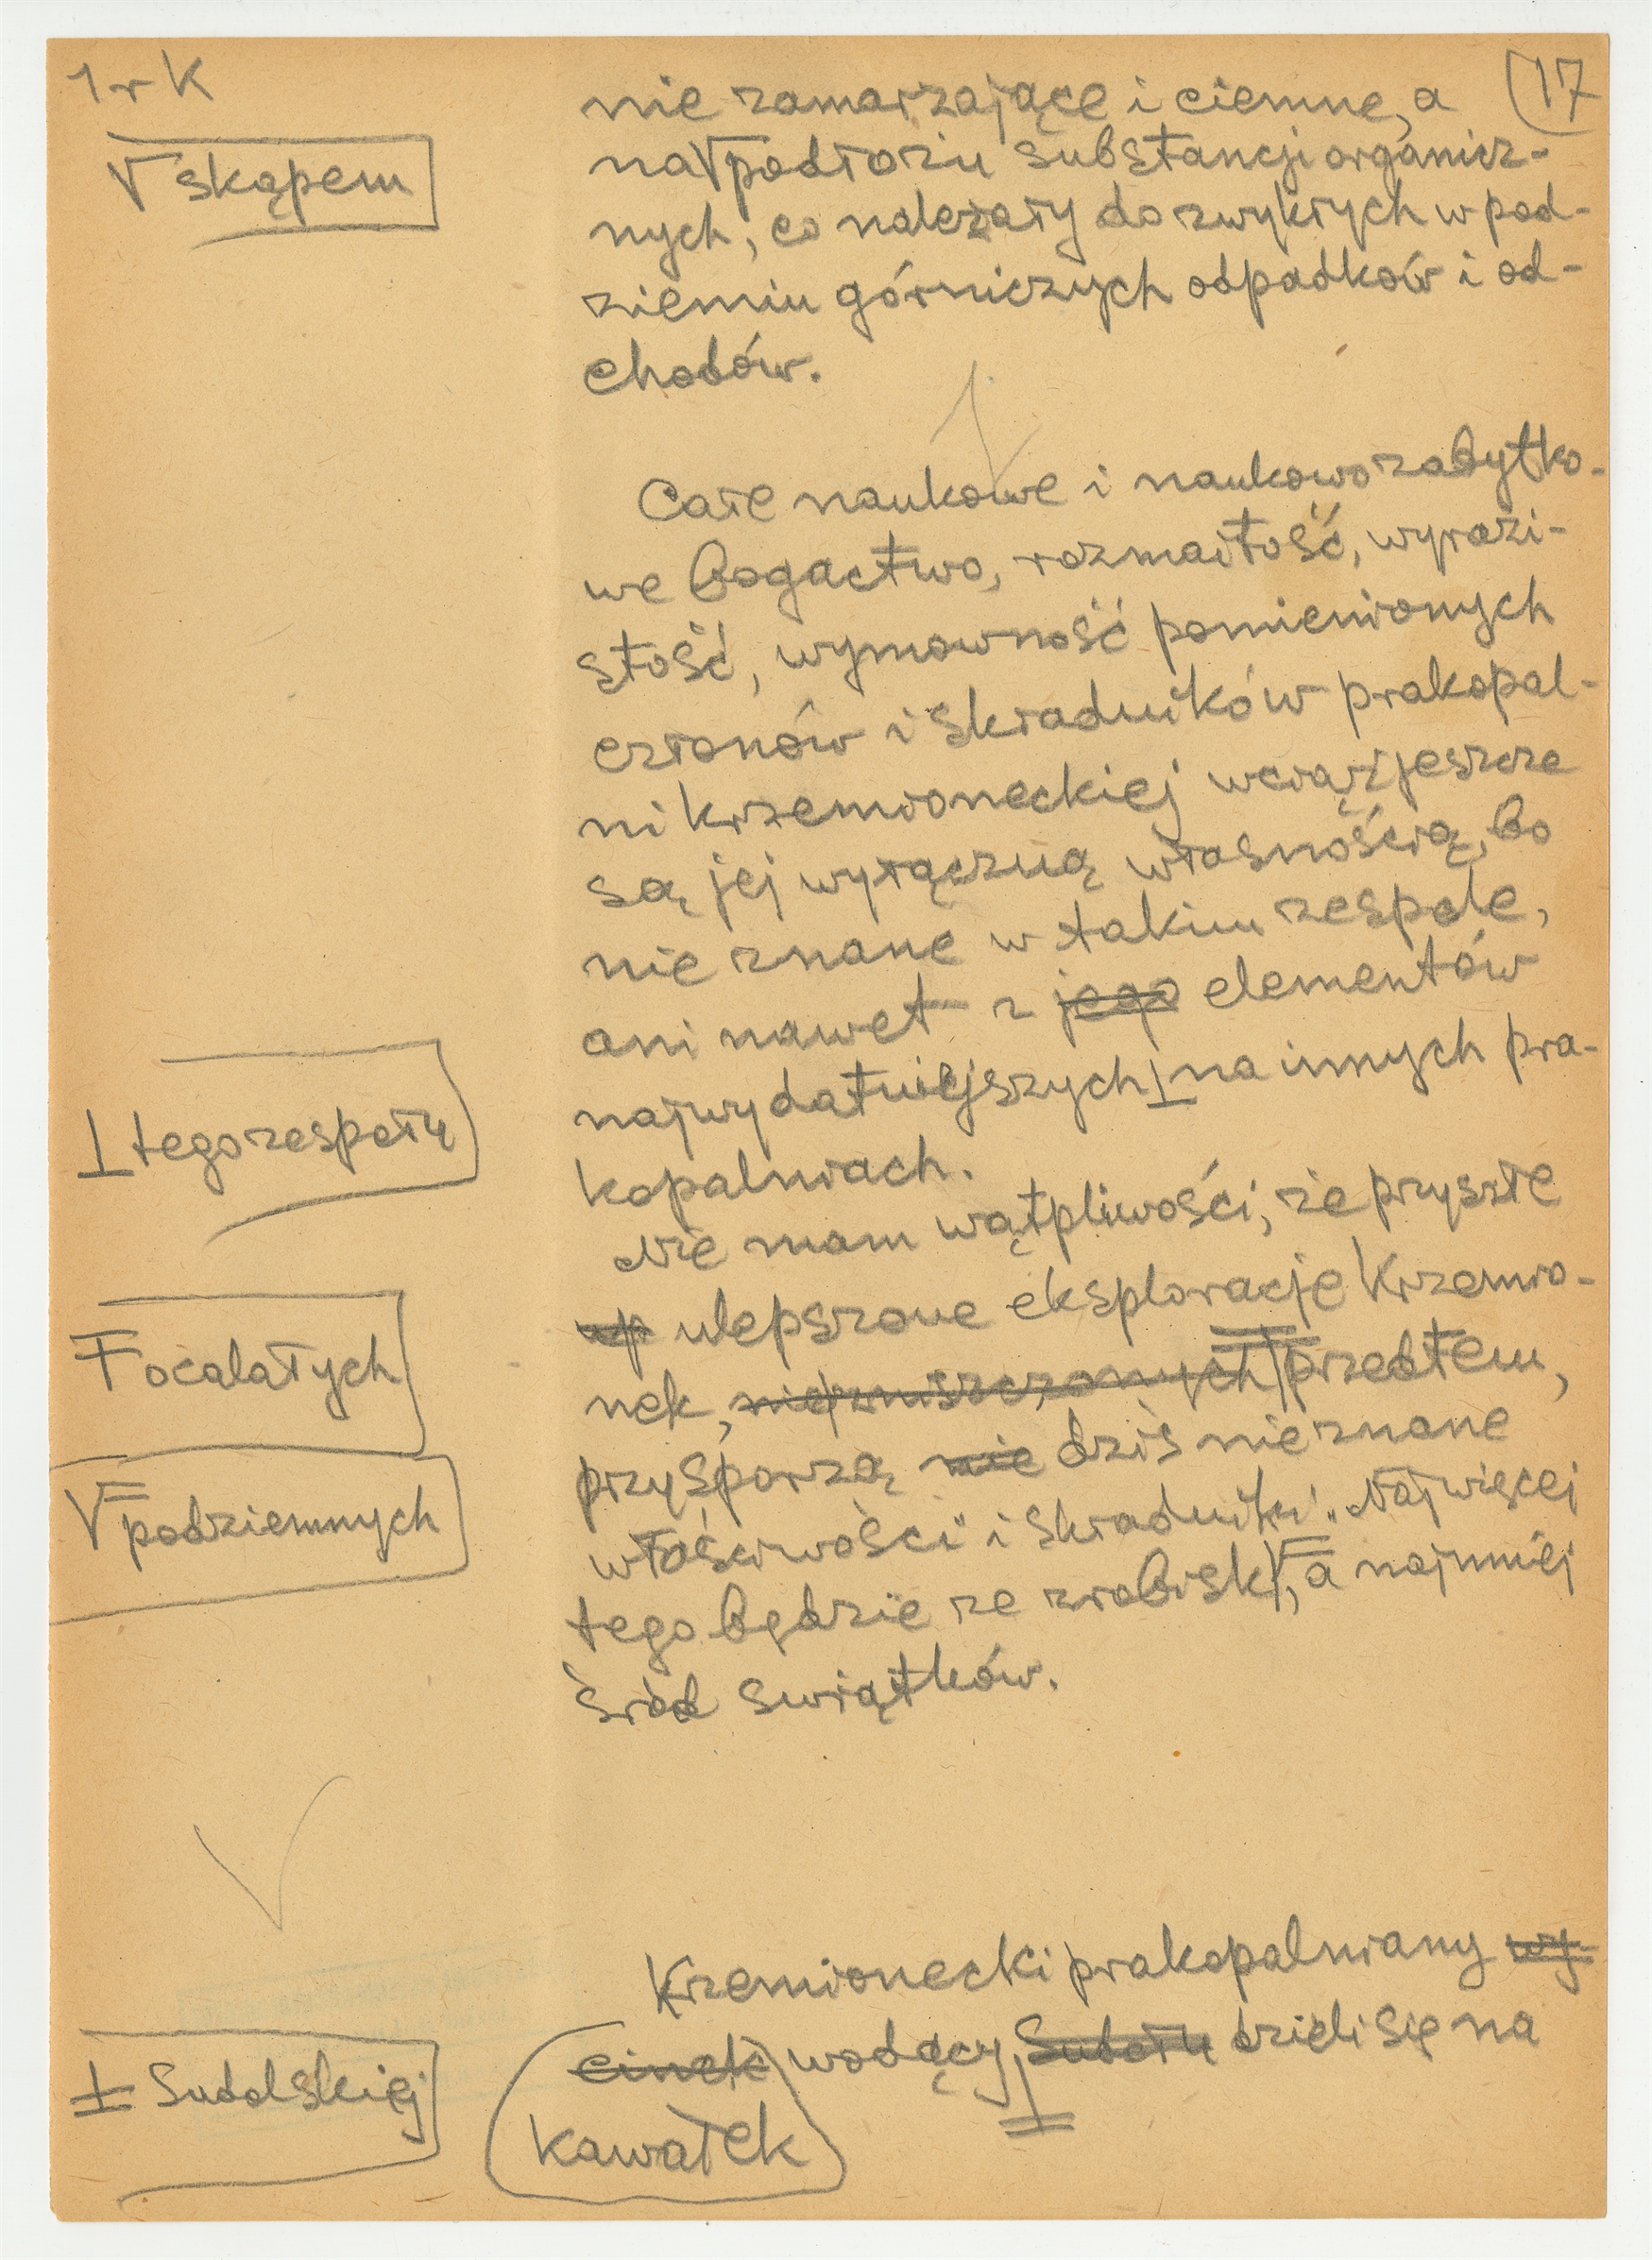 1 r K
17
nie zamarzające i ciemne, a
na podłożu substancji organicz-
nych, co należały do zwykłych w pod-
ziemiu górniczych odpadków i od-
chodów.
skąpem
Całe naukowe i naukowo zabytko-
we bogactwo, rozmaitość, wyrazi-
stość, wymowność pomienionych
członów i składników prakopal-
ni krzemioneckiej wciąż jeszcze
są jej wyłączną własnością, bo
nie znane w takim zespole,
ani nawet z jego elementów
najwydatniejszych na innych pra-
kopalniach.
tego zespołu
Nie mam wątpliwości, że przyszłe
ulepszone eksploracje Krzemio-
nek, niezniszczonych przedtem,
przysporzą nie dziś nieznane
właściwości i składniki. Najwięcej
tego będzie ze zrobisk, a najmniej
śród świątków.
ocalałych
podziemnych
Krzemionecki prakopalniany wy-
cinek wodący Sudołu dzieli się na
kawałek
Sudolskiej